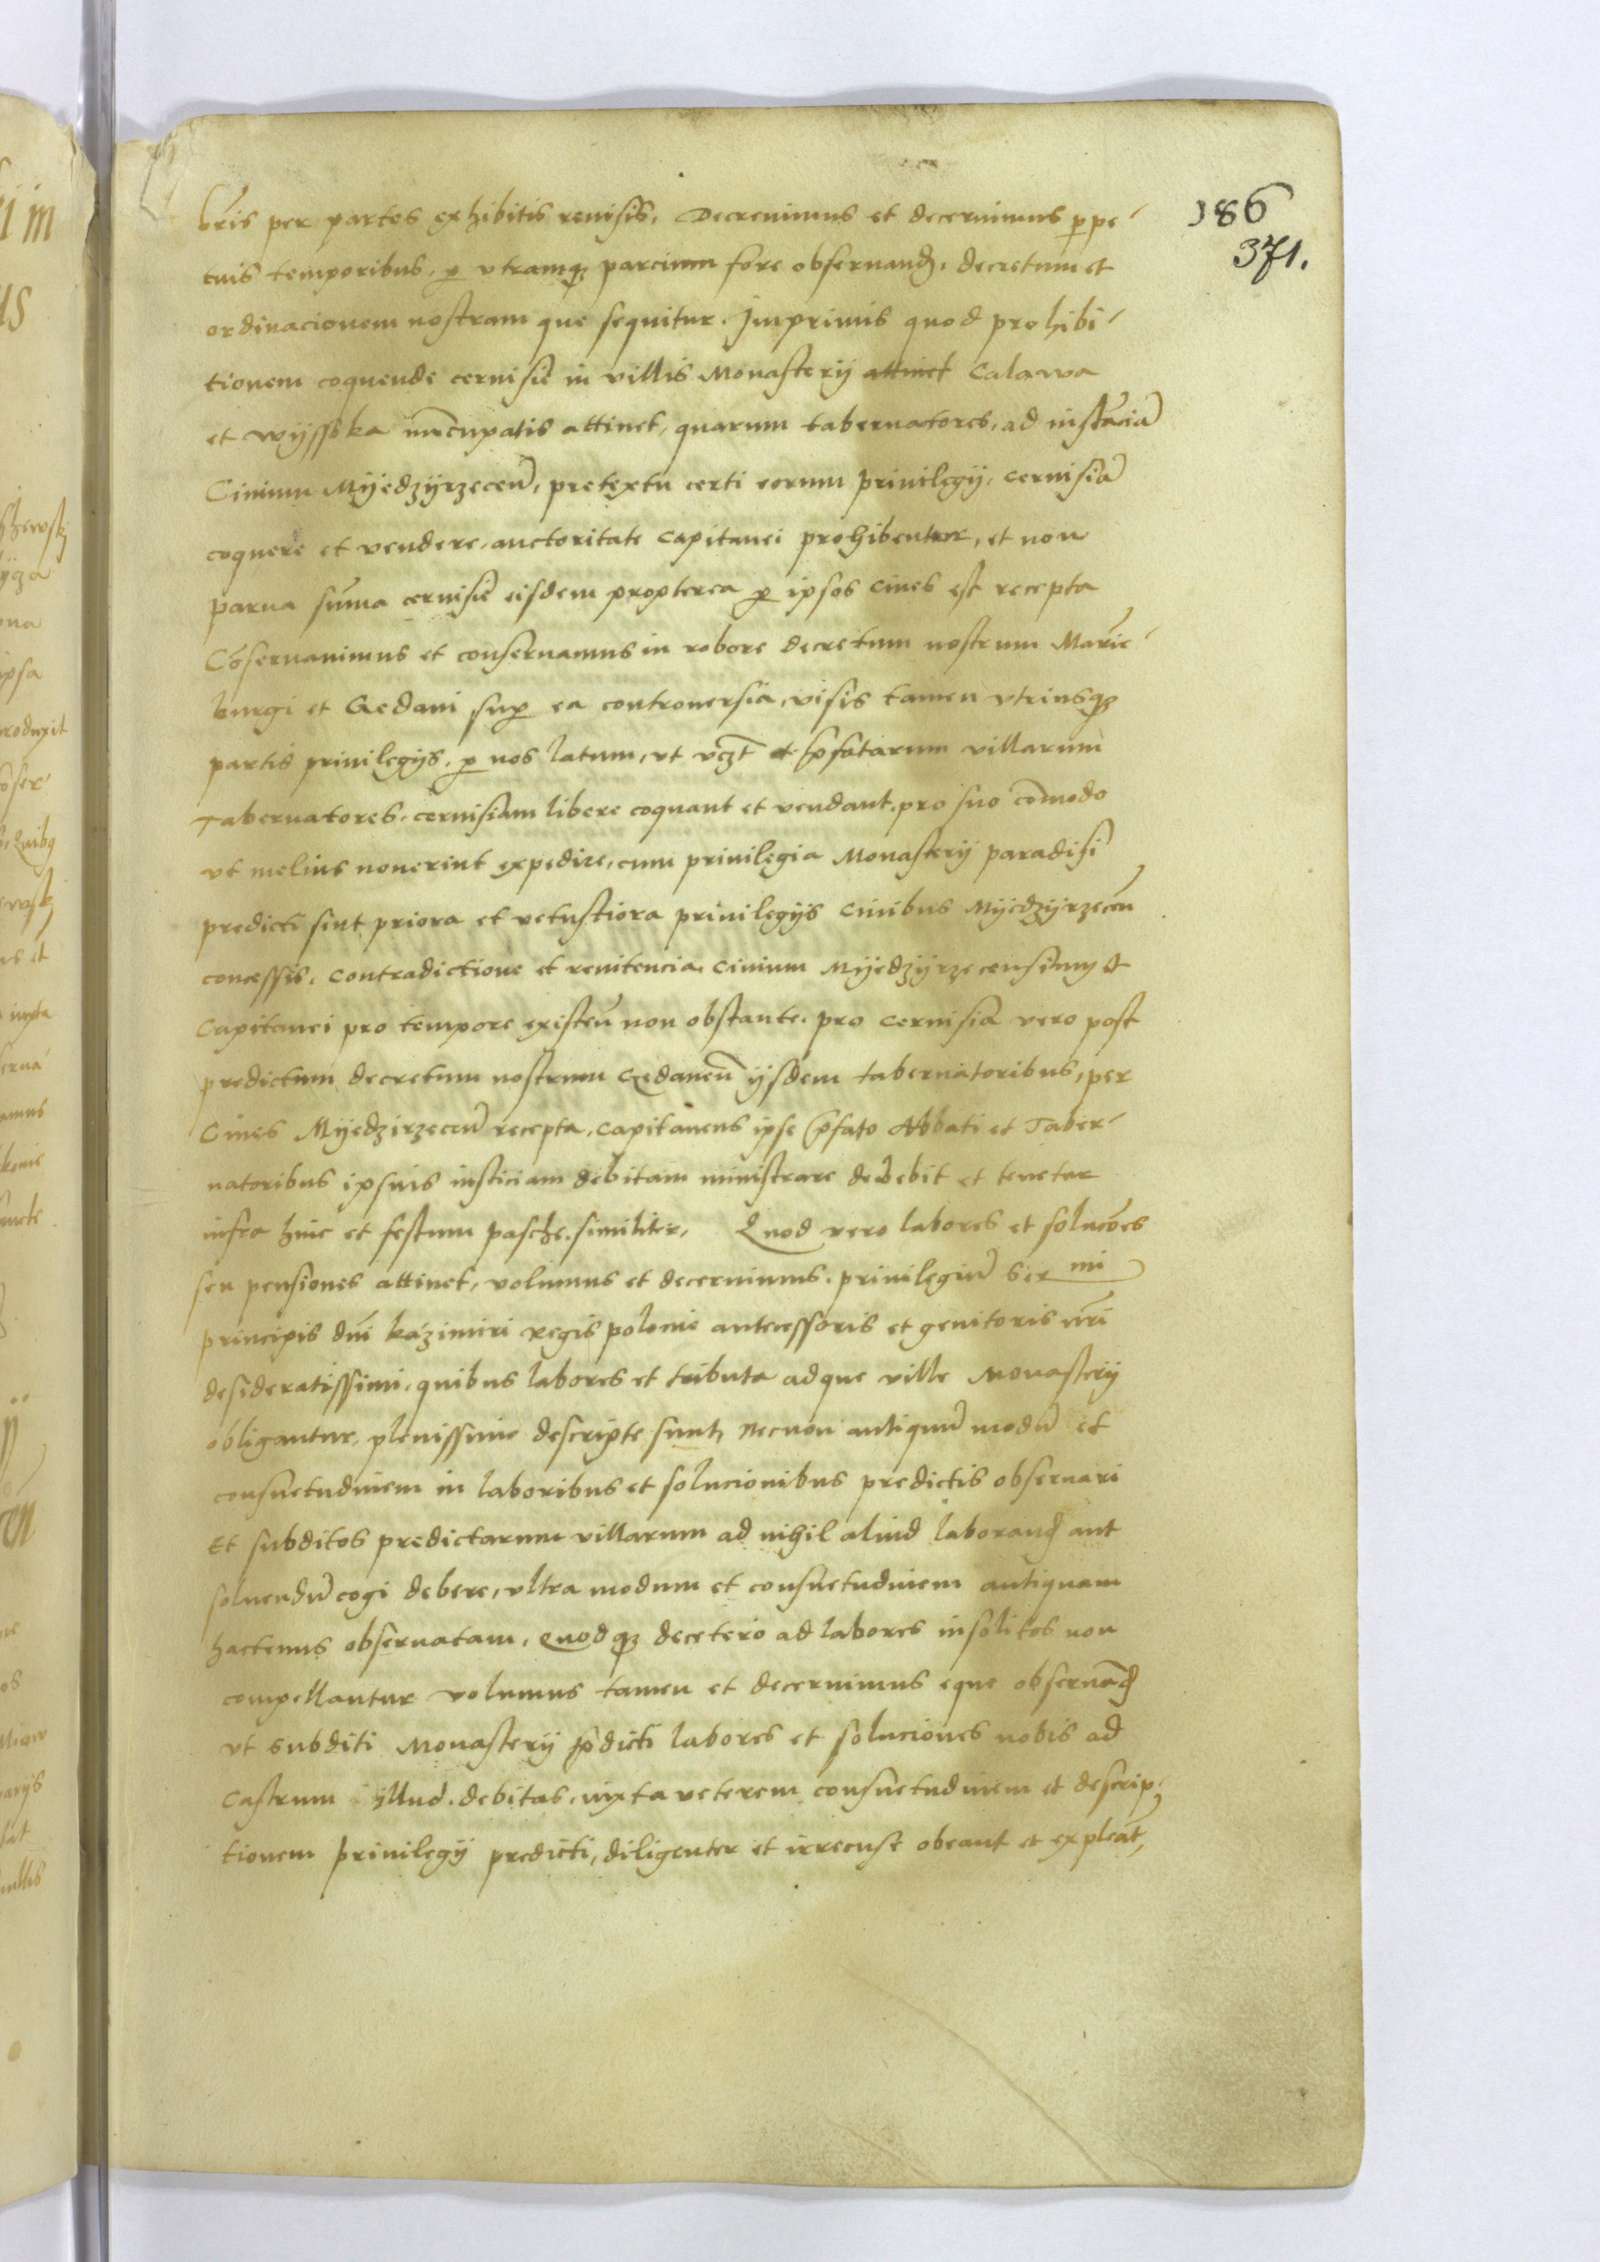 186
371.
lr̃is per partes exhibitis reuisis, Decreuimus et decernimus ꝑpe-
tuis temporibus, ꝑ vtramqꝫ parcium fore obseruand, decretum et
ordinacionem nostram que sequitur. Imprimis quod prohibi-
tionem coquende ceruisie in villis Monasterij attinet Calawa
et Wyssoka nũcupatis attinet, quarum tabernatores, ad instãciã
Ciuium Myedzyrzeceñ, pretextu certi eorum priuilegij, ceruisiã
coquere et vendere, auctoritate Capitanei prohibentur, et non
parua sũma ceruisie eisdem propterea ꝑ ipsos Ciues est recepta
Cõseruauimus et conseruamus in robore decretum nostrum Marie-
burgi et Gedani suꝑ ea controuersia, visis tamen vtriusqꝫ
partis priuilegijs, ꝑ nos latum, vt vꝫt p̃fatarum villarum
Tabernatores, ceruisiam libere coquant et vendant, pro suo cõmodo
vt melius nouerint expedire, cum priuilegia Monasterij paradisi
predicti sint priora et vetustiora priuilegijs Ciuibus Myedzyrzeceñ
concessis, Contradictione et renitencia Ciuium Myedzyrzecensium et
Capitanei pro tempore existeñ non obstante. pro Ceruisia vero post
predictum decretum nostrum Gedaneñ ijsdem tabernatoribus, per
Ciues Myedzirzeceñ recepta, Capitaneus ipse p̃fato Abbati et Taber-
natoribus ipsius iusticiam debitam ministrare debebit et tenetur
infra hinc et festum pasche similiter, Quod vero labores et solucões
seu pensiones attinet, volumus et decernimus, priuilegiũ Ser mi
principis dñi kazimiri Regis polonie antecessoris et genitoris nr̃i
desideratissimi, quibus labores et tributa adque ville Monasterij
obligantur, plenissime descripte sunt, Necnon antiquũ modũ et
consuetudinem in laboribus et solucionibus predictis obseruari
Et subditos predictarum villarum ad nihil aliud laborand aut
soluendũ cogi debere, vltra modum et consuetudinem antiquam
hactenus obseruatam, Quodqꝫ decetero ad labores insolitos non
compellantur volumus tamen et decernimus eque obseruãd
vt subditi Monasterij p̃dicti labores et soluciones nobis ad
Castrum illud debitas, iuxta veterem consuetudinem et descrip-
tionem priuilegij predicti, diligenter et irrecuse obeant et expleãt,